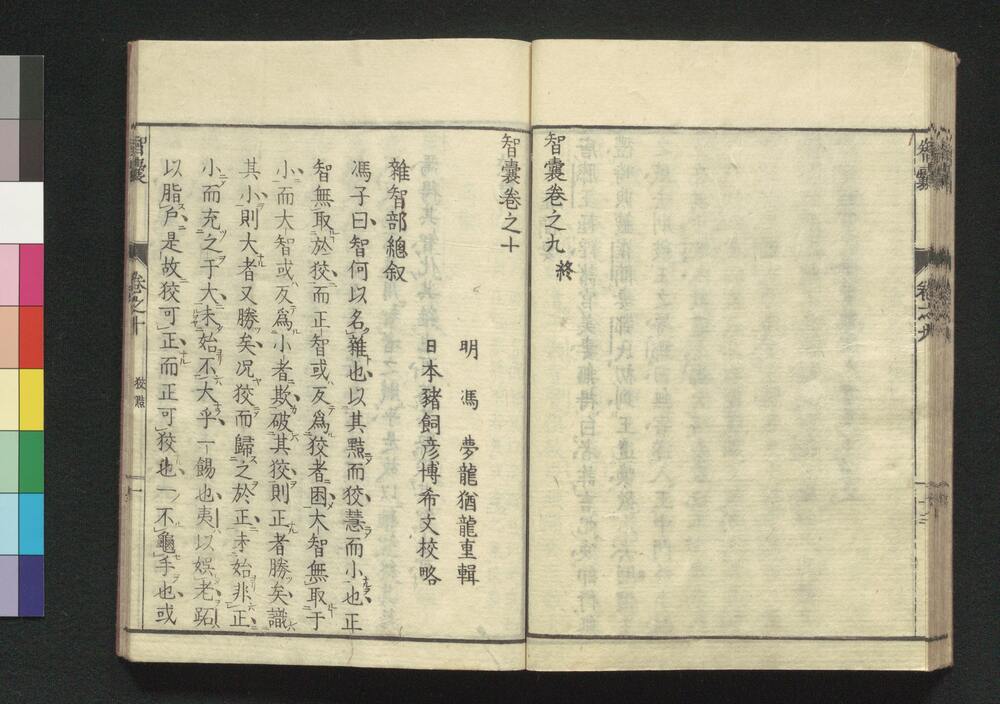 智囊卷之九終
智囊卷之十
明 馮 夢龍猶龍重輯
日本豬飼彦博希文校略
雜智部總叙
馮子曰智何以名雜也以其黠而狡慧而小也正
智無取於狡而正智或反爲狡者困大智無取于
小而大智或反爲小者欺破其狡則正者勝矣識
其小則大者又勝矣况狡而歸之於正未始非正
小而充之于大未始不大乎一餳也夷以娛老跖
以脂戶是故狡可正而正可狡也一不龜手也或
智囊
卷之十
狡黠
一
智囊
卷之九